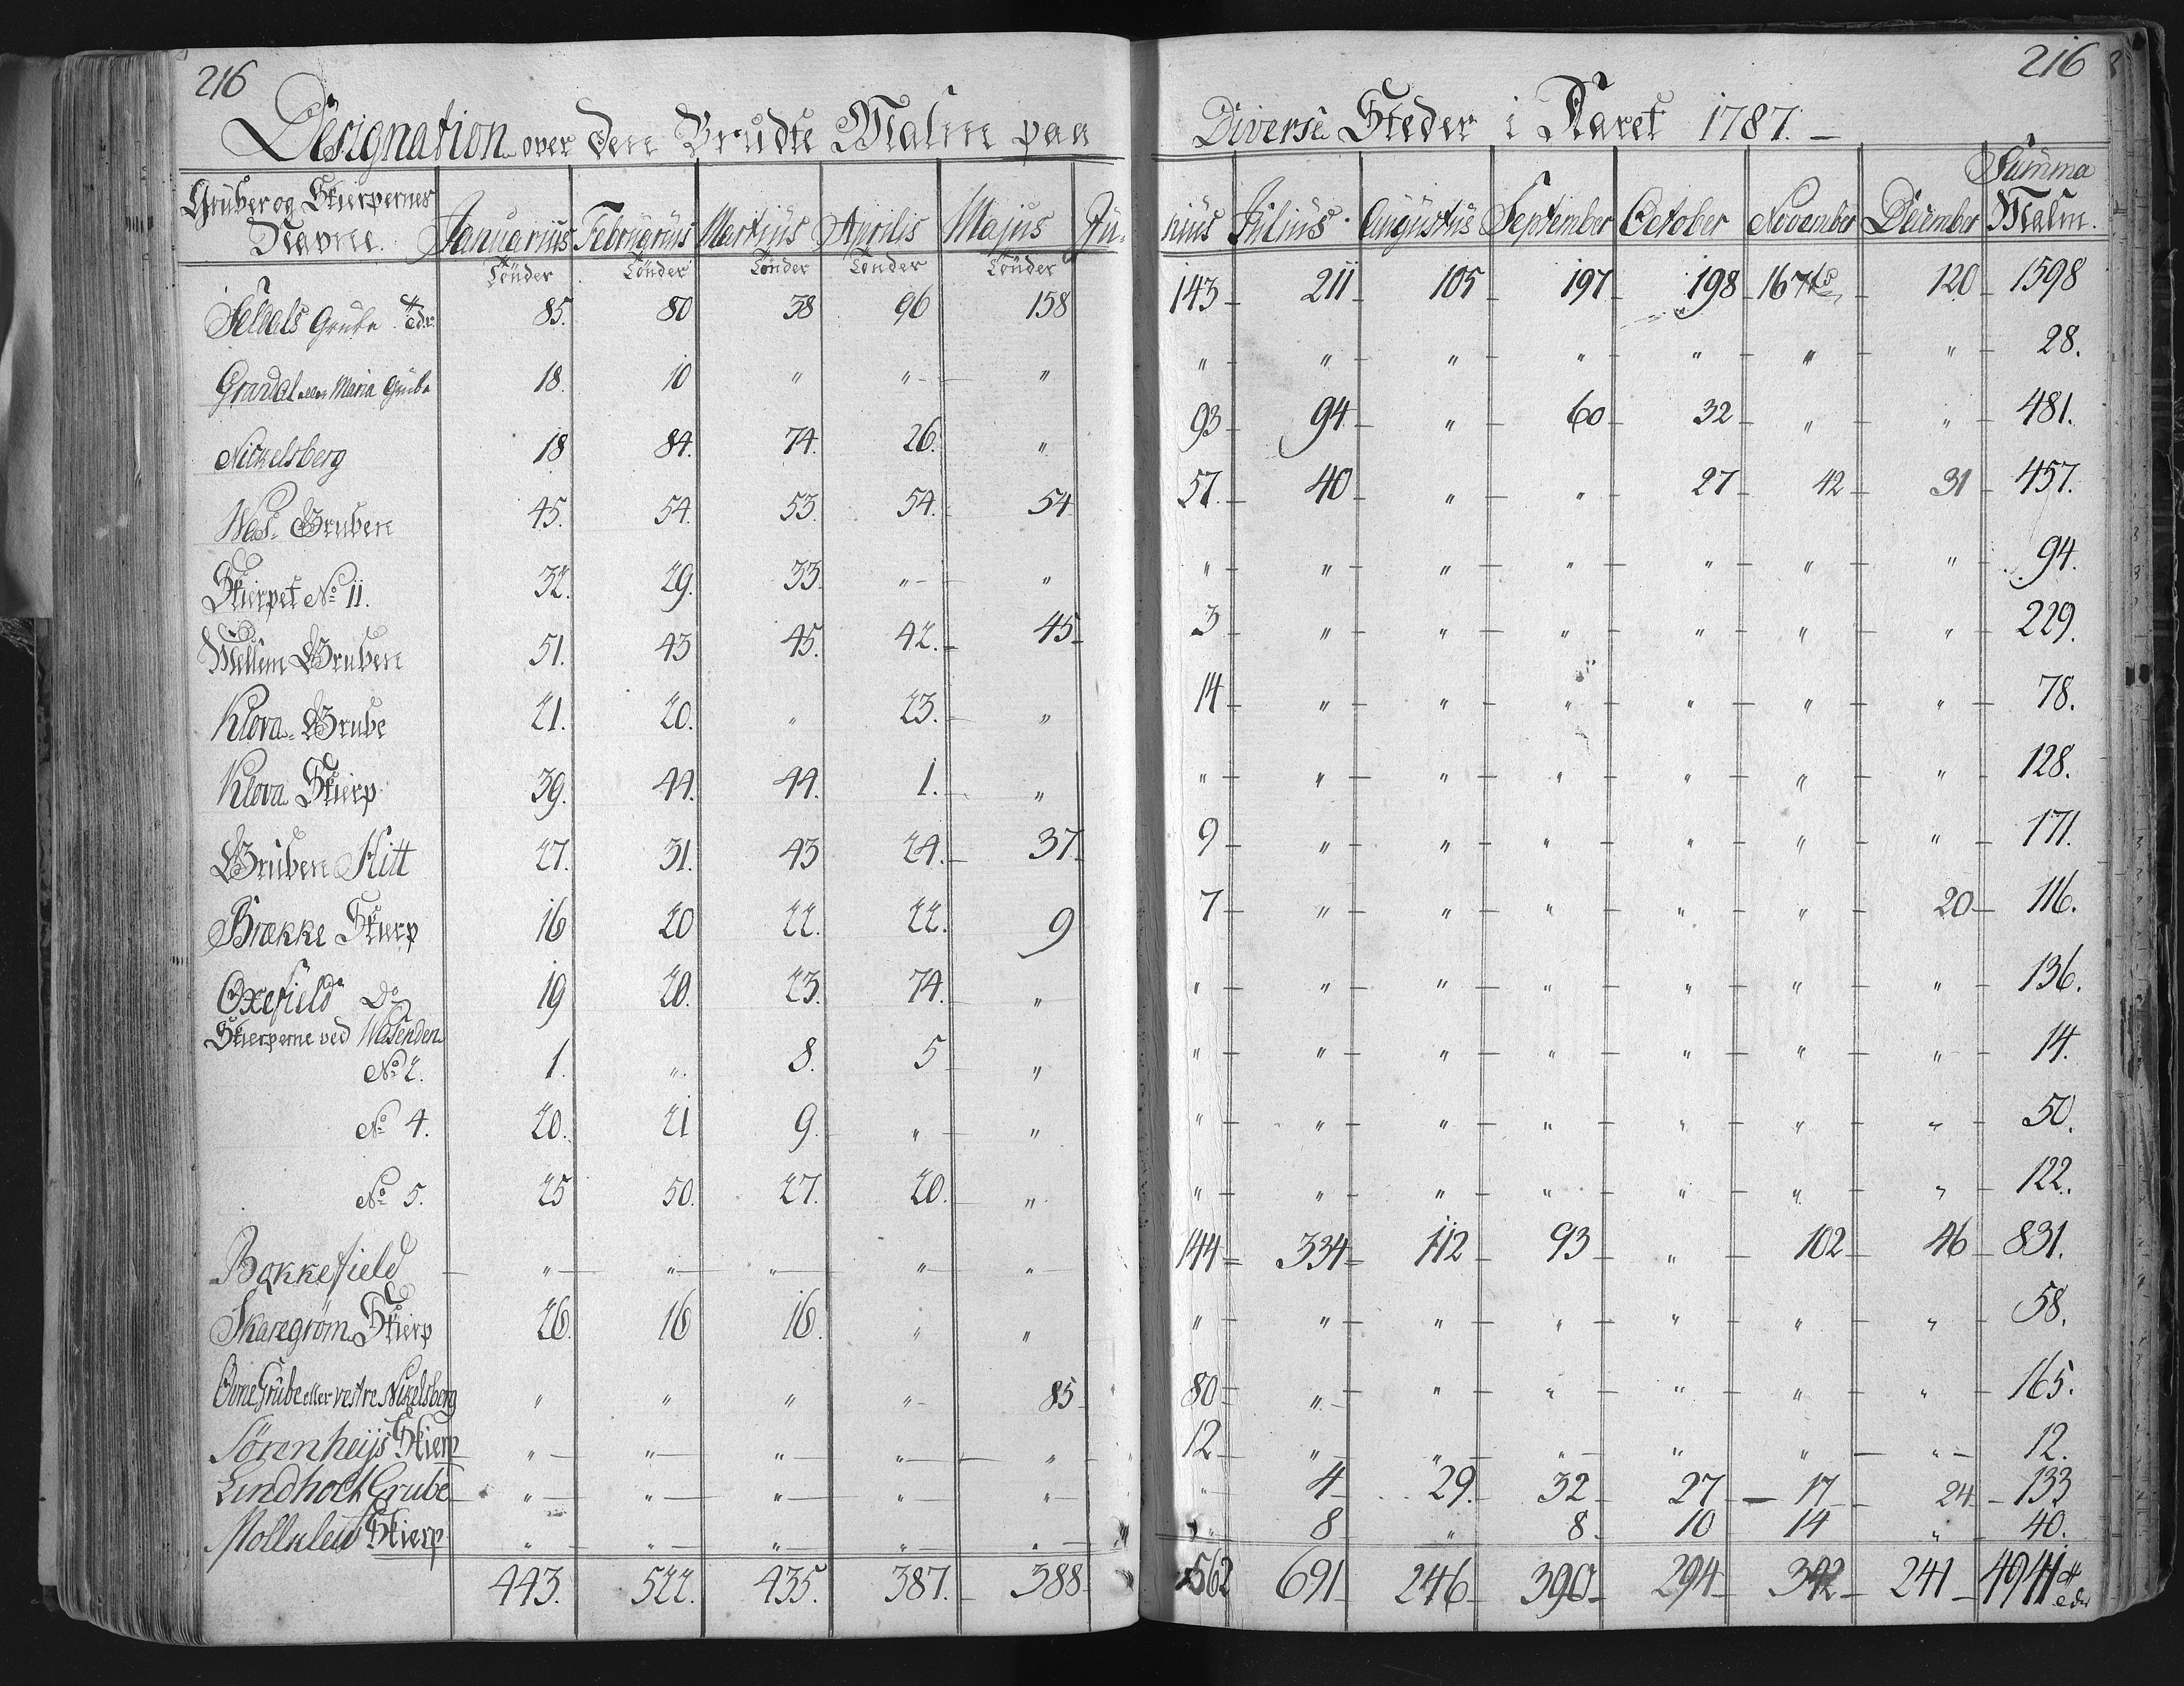 216 216
Designation over den Brudte Malm paa Diverse Steder i Aaret 1787. —
Gruber og Skierpernes Navne. Januarius Februarius Martius Aprilis Majus Ju- nius Julius. Augustus September October November December Summa Malm.
Tønder Tønder Tønder Tønder Tønder
Grube 85. 80 38 96 158 143 211 105 197 198 167 120 1598
Grandal eller Maria Grube 18. 10 " " " " " " " " " " 28.
Nickelsberg 18 84. 74. 26. " 93 94 " 60 32 " " 481.
Gruben 45. 54. 53. 54. 54 57. 40 " " 27 42 31 457.
Skierpet No 11. 32. 29. 33. " " " " " " " " " 94.
Mellem Gruben 51. 43 45. 42. 45 3 " " " " " " 229.
Klova Grube 21. 20. " 23. " 14 " " " " " " 78.
Klova Skierp 39. 44. 44. 1. " " " " " " " " 128.
Gruben Hitt 27. 31. 43 24. 37. 9 " " " " " " 171.
Brække Skierp 16 20 22. 22. 9 7 " " " " " 20 116.
Oxefield Do 19 20. 23. 74. " " " " " " " " 136.
Skierperne ved Wasenden
No 2. 1. " 8. 5 " " " " " " " " 14.
No 4. 20. 21 9. " " " " " " " " " 50.
No 5. 25 50. 27. 20. " " " " " " " " 122.
Bakkefield " " " " " 144 334 112 93 " 102 46 831.
Skaregrøm Skierp 26. 16 16. " " " " " " " " " 58.
Øvne Grube eller vestre Nikelsberg " " " " 85 80 " " " " " " 165.
Sørenheijs Skierp " " " " " 12 " " " " " " 12.
Lindholt Grube " " " " " " 4 29. 32 27 17 24 133
Skierp " " " " " " 8 " 8 10 14 " 40.
443. 522. 435. 387. 388 562 691 246 390 294 342 241 4941